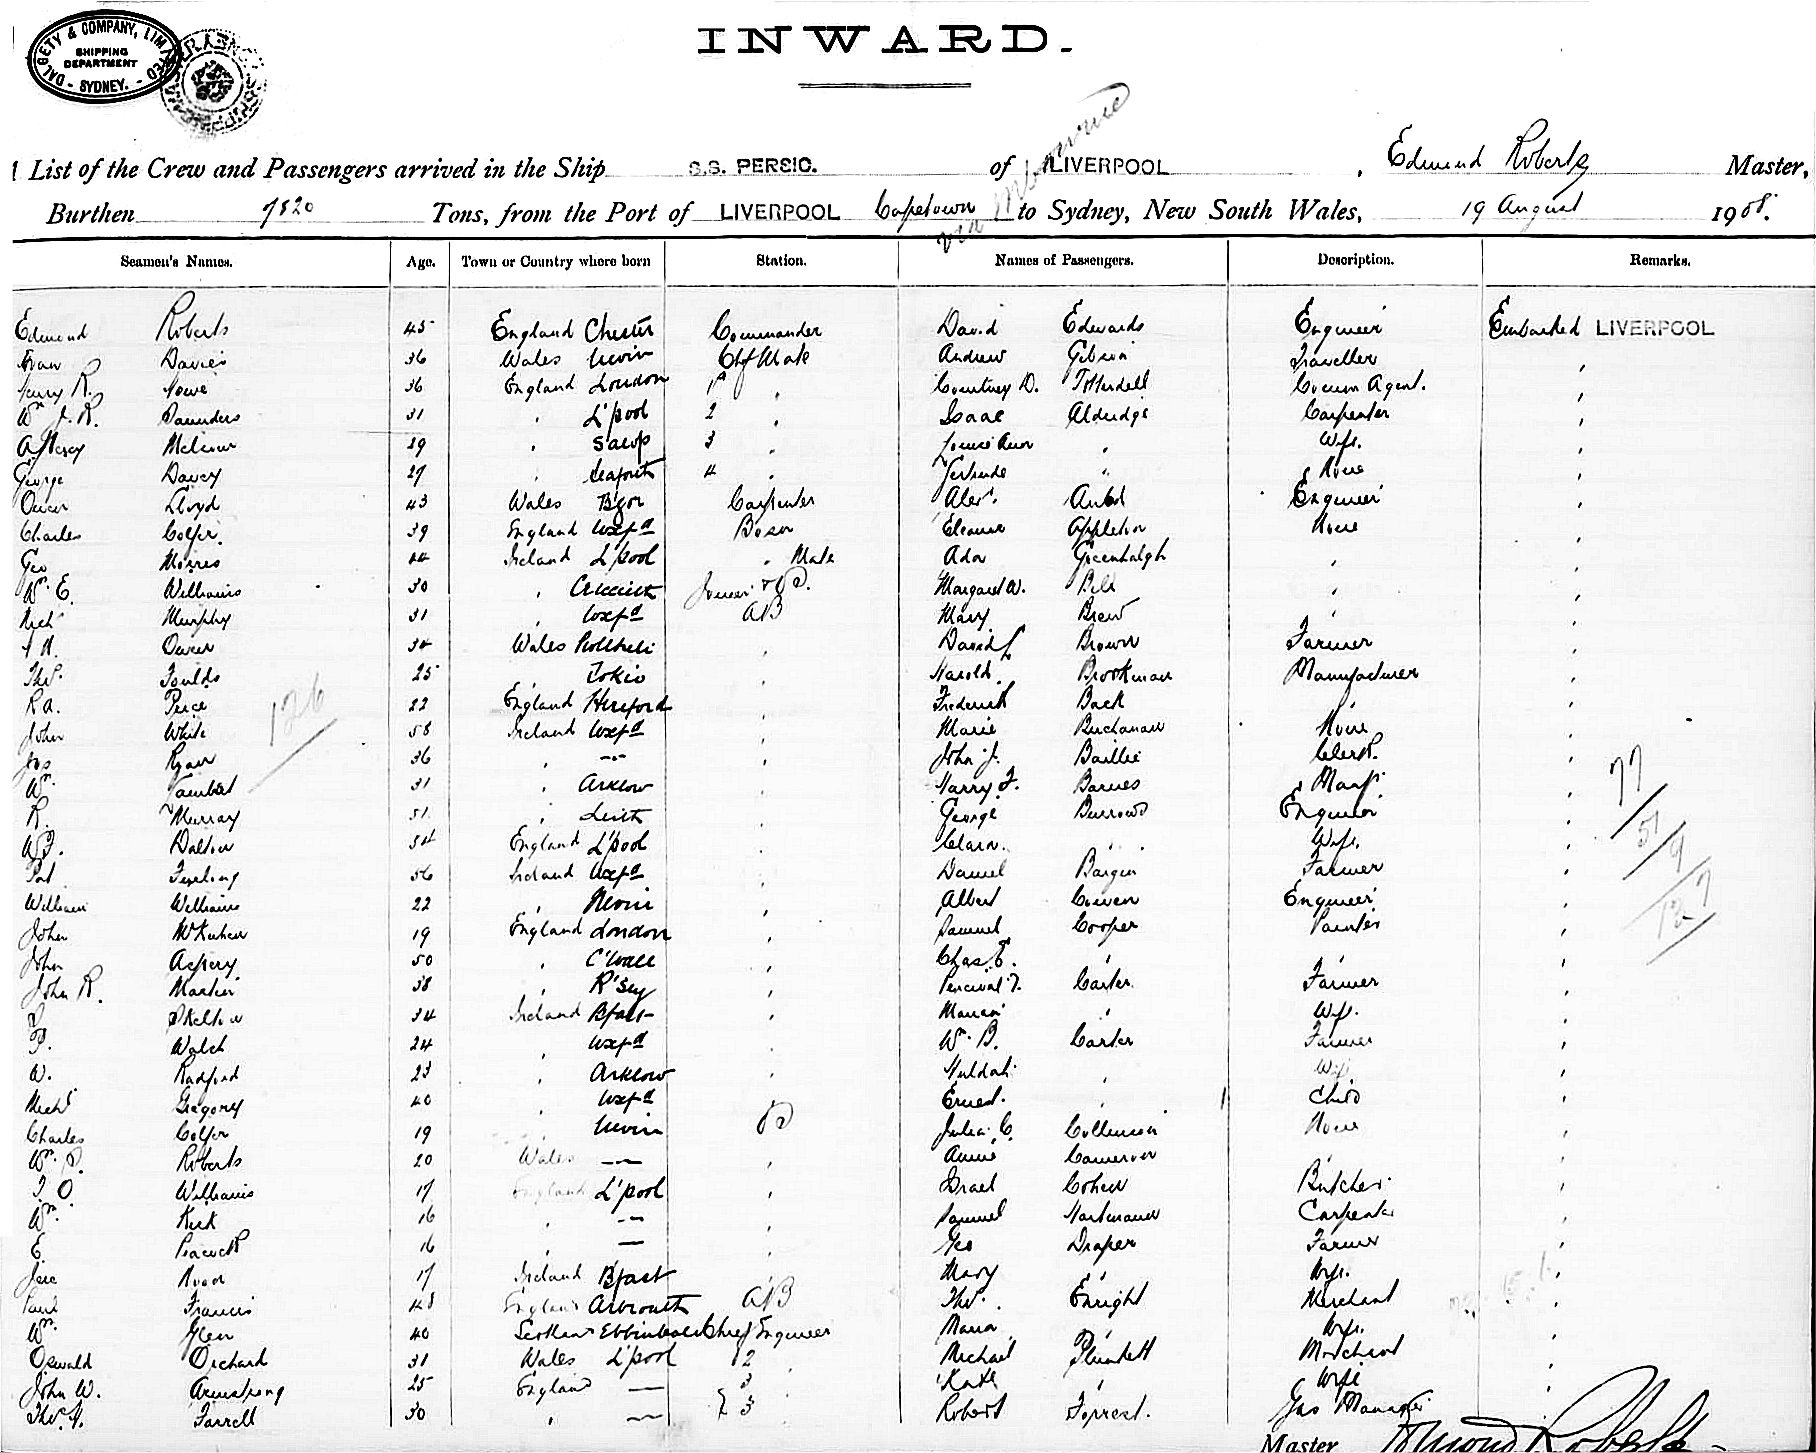 DALGETY & COMPANY, LIMITED
SHIPPING DEPARTMENT
- SYDNEY. -
INWARD.
List of the Crew and Passengers arrived in the Ship S.S. PERSIC. of LIVERPOOL, Edmund Roberts Master,
Burthen 7820 Tons, from the Port of LIVERPOOL Capetown via Melbourne to Sydney, New South Wales, 19 August 1908.
Seamen's Names. Age. Town or Country where born Station. Names of Passengers. Description. Remarks.
Edmund Roberts 45 England Chester Commander David Edwards Engineer Embarked LIVERPOOL
Evan Davies 36 Wales Nevin Chf Mate Andrew Gibson Traveller
Harry R. Howe 36 England London 1st Courtney D. Comm Agent.
Wm J. R. Saunders 31 L'pool 2 Isaac Aldridge Carpenter
29 Salop 3 Louisa Ann Wife.
George Davey 27 Seaforth 4 Gertrude None
Owen Lloyd 43 Wales B'gor Carpenter Alexr. Engineer
Charles Colfer. 39 England Wxfd Bosun Eleanor Appleton None
Geo Morris 44 Ireland L'pool " Mate Ada Greenhalgh
Wm. E. Williams 30 Joiner & AB. Margaret W. Bell
Richd Murphy 31 Wxfd AB Mary Brew
Owen 34 Wales Pwllheli David L Brown Farmer
Thos. Foulds 25 Tokio Harold Brookman Manufacturer
R. A. Price 22 England Hereford Frederick Back
John White 58 Ireland Wxfd Marie Buchanan None
Jas Ryan 36 -"- John J. Baillie Clerk.
Wm. Lambert 31 Arklow Harry F. Barnes Manf.
R. Murray 51 Leith George Burrows Engineer
W. Dalton 54 England L'pool Clara. Wife.
Pat Furlong 56 Ireland Wxfd Daniel Farmer
William Williams 22 Nevin Albert Cowen Engineer
John 19 England London Samuel Cooper Painter
John 50 C'wall Chas. E.
John R. Martin 38 R'sey Percival J. Carter. Farmer
Skelton 34 Ireland Bfast Wife.
P. Walsh 24 Wxfd Wm. B. Carter Farmer
W. Radford 23 Arklow Huldah Wife
Michl Gregory 40 Wxfd Ernest. Child
Charles Colfer 19 Nevin Julia C. None
Wm. Roberts 20 Wales -"- Annie Cameron
J. O. Williams 17 England L'pool Israel Cohen Butcher.
Wm. Kirk 16 -"- Samuel Carpenter
E. Peacock 16 — Geo Draper Farmer
17 Ireland Bfast Mary Wife.
Paul Francis 48 England Arbroath AB Thos. Enright Merchant
Wm. Glen 40 Scotland Chief Engineer Maria Wife.
Oswald Orchard 31 Wales L'pool 2 Michael Plunkett Merchant
John W. Armstrong 25 England — 3 Kate Wife
Thos. Farrell 30 3 Robert Forrest. Gas Manager
126
77
51/9
127
Master Edmund Roberts